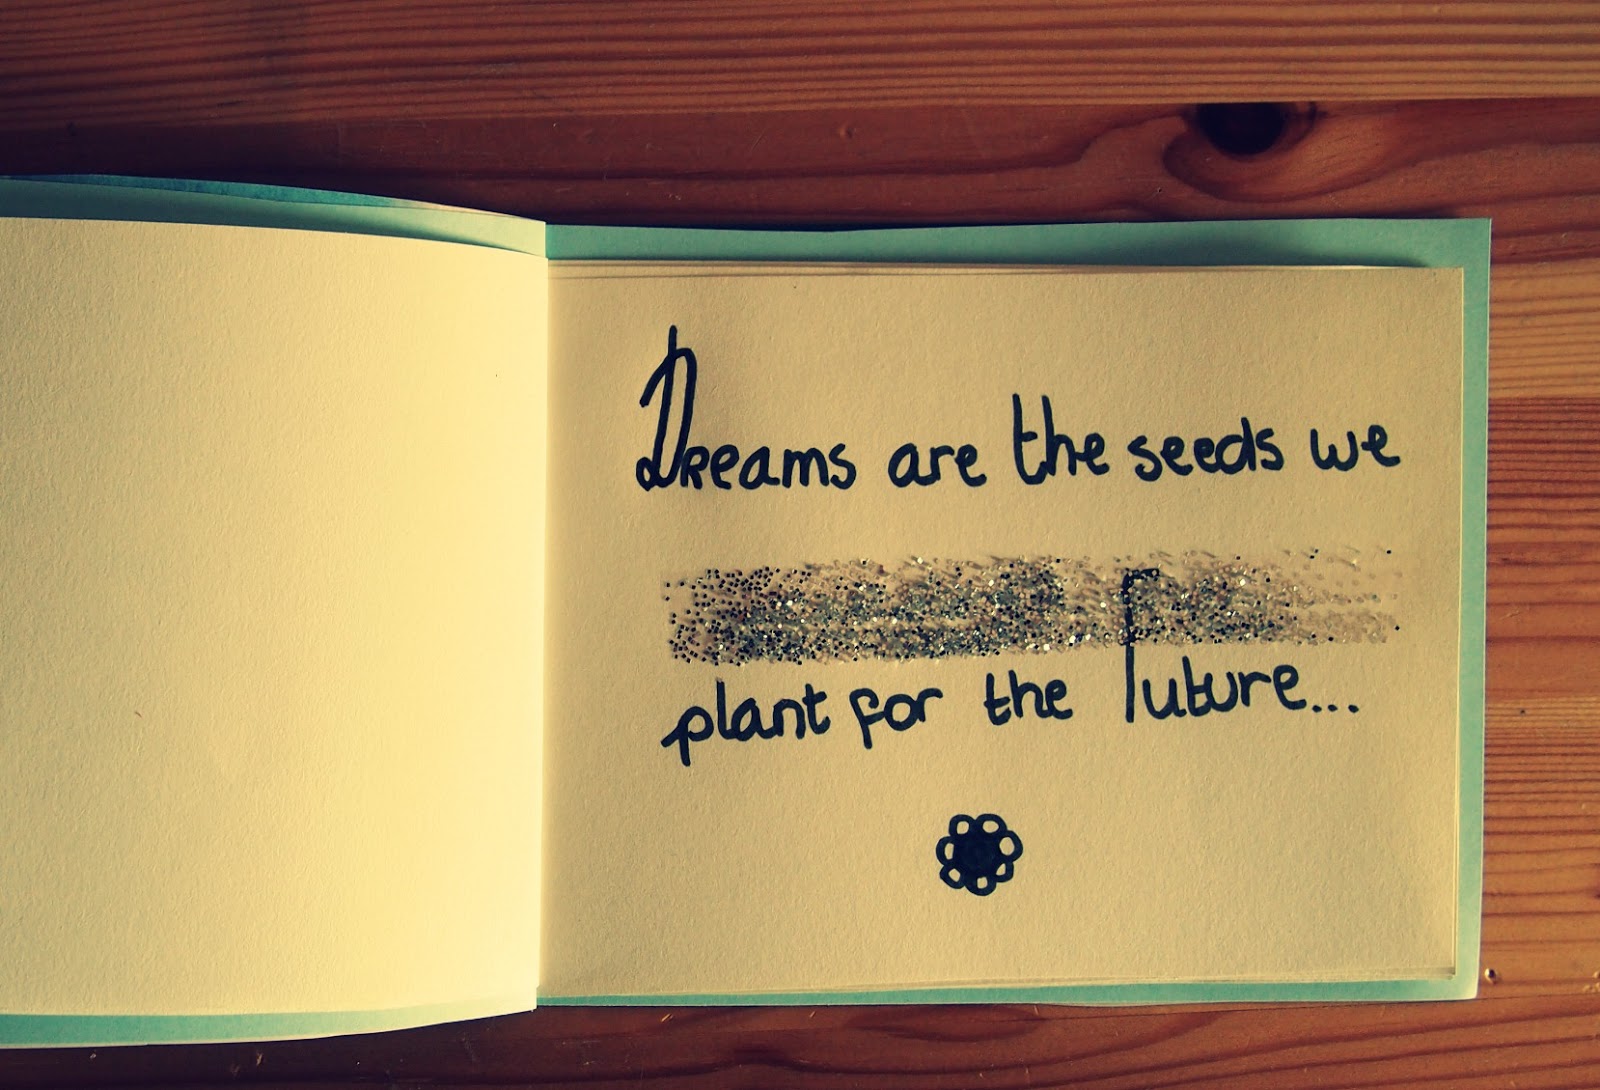 Dreams are the seeds we
plant for the future...